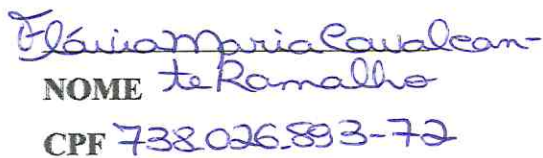 Flávia Maria Cavalcan-
NOME te Ramalho
CPF 738.026.893-72